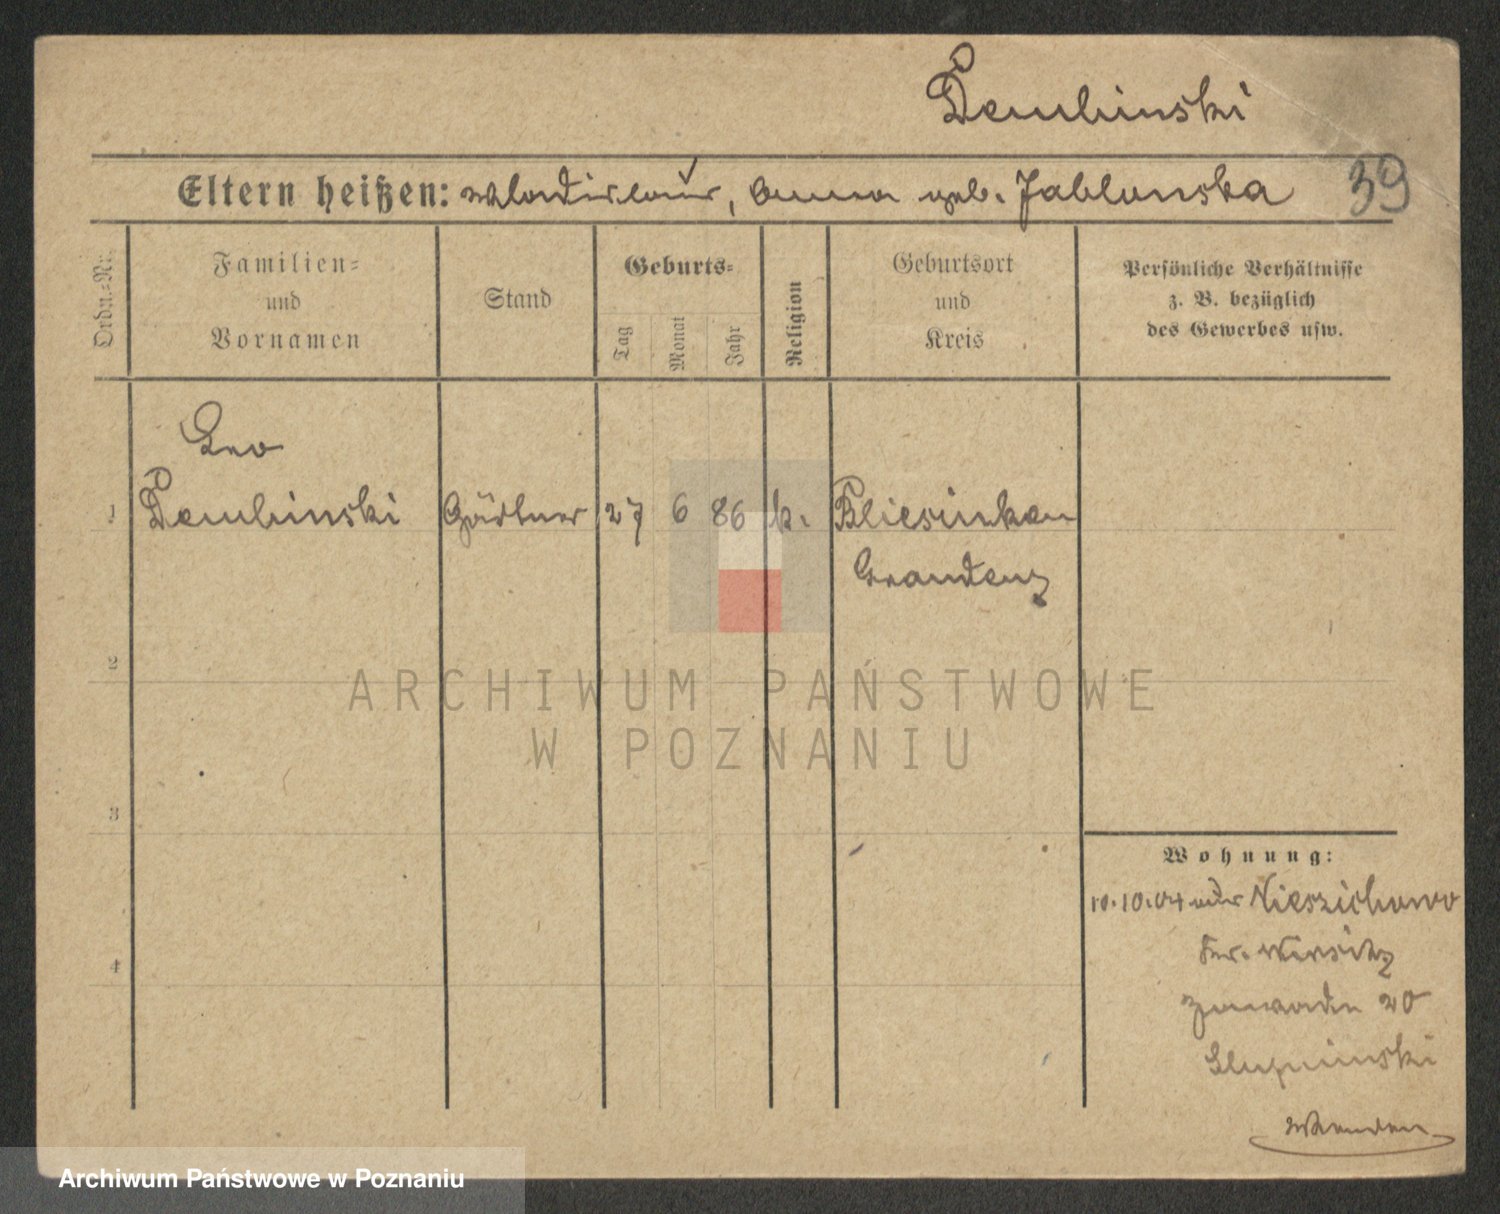 Dembinski
Eltern heißen: Wladislaus, Anna geb. Jablonska
39
Ordn.-Nr.
Familien-
und
Vornamen
Stand
Geburts-
Tag
Monat
Jahr
Religion
Geburtsort
und
Kreis
Persönliche Verhältnisse
z. B. bezüglich
des Gewerbes usw.
Leo
1 Dembinski Gärtner 27 6 86 k. Bliesinken
Graudenz
2
ARCHIWUM PAŃSTWOWE
W POZNANIU
3
Wohnung:
10.10.04 Nieszichowo
Kr. Wirsitz
4
Zawade 20
Archiwum Państwowe w Poznaniu